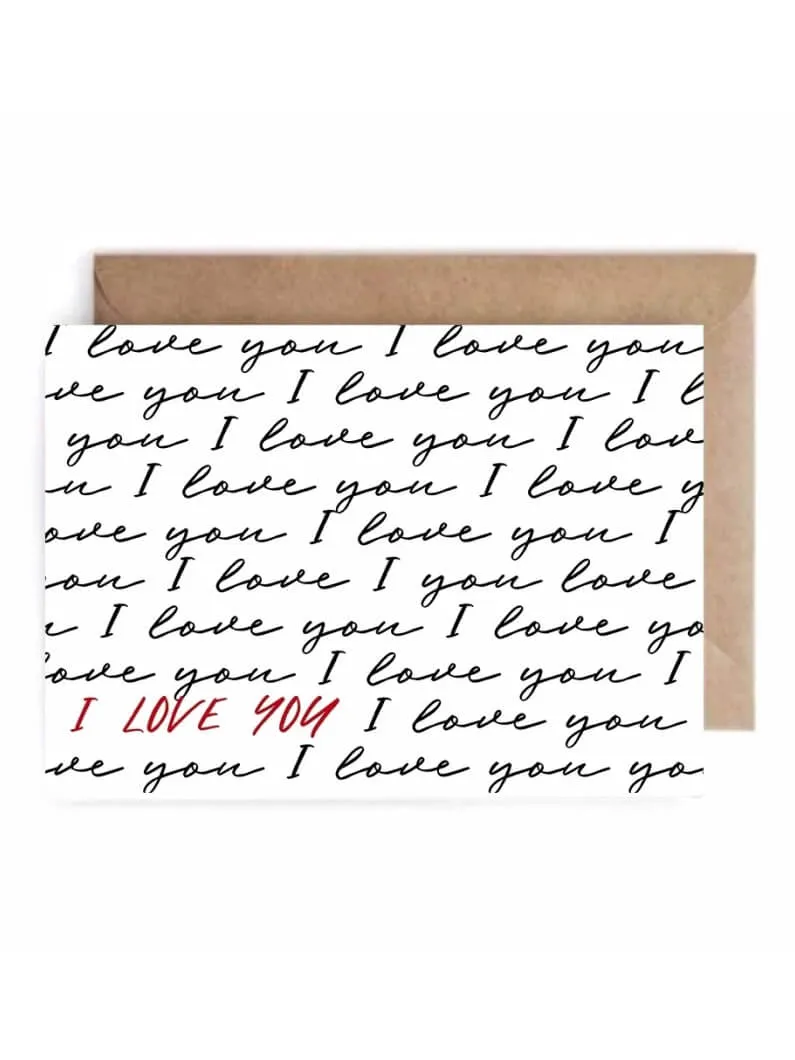 I love you I love you
ve you I love you I l
you I love you I lov
u I love you I love y
ove you I love you I
ou I love I you love
u I love you I love yo
love you I love you I
I LOVE YOU I love you
ve you I love you yo